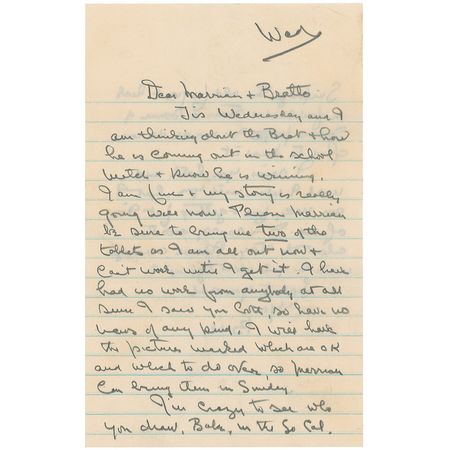 Wed
Dear Marrian + Bratto
Tis Wednesday and I
am thinking about the Brat + how
he is coming out in the school
match + know he is winning.
I am fine + my story is really
going well now. Please Marrian
be sure to bring me two of the
tablets as I am all out now +
can't work until I get it. I have
had no word from anybody at all
since I saw you both, so have no
news of any kind. I will have
the pictures marked which are OK
and which to do over, so Marrian
can bring them in Sunday.
I'm crazy to see who
you draw, Babe, in the So Cal.